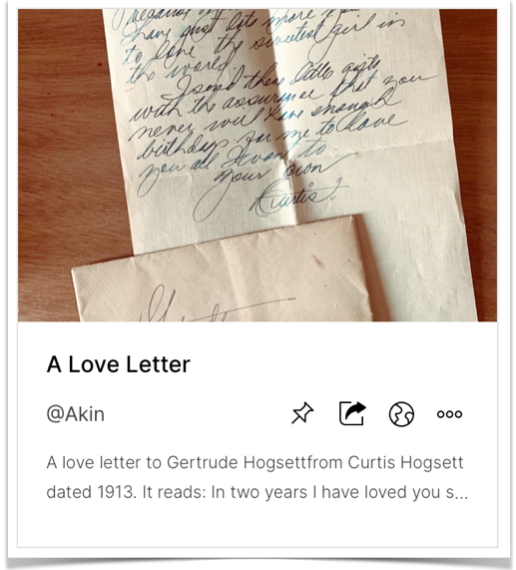 I
have just lots more
to love the sweetest girl in
the world.
I send these little gifts
with the assurance that you
never will have enough
birthdays for me to love
you all I want to.
Your own
Curtis.
A Love Letter
@Akin
A love letter to Gertrude Hogsettfrom Curtis Hogsett
dated 1913. It reads: In two years I have loved you s...